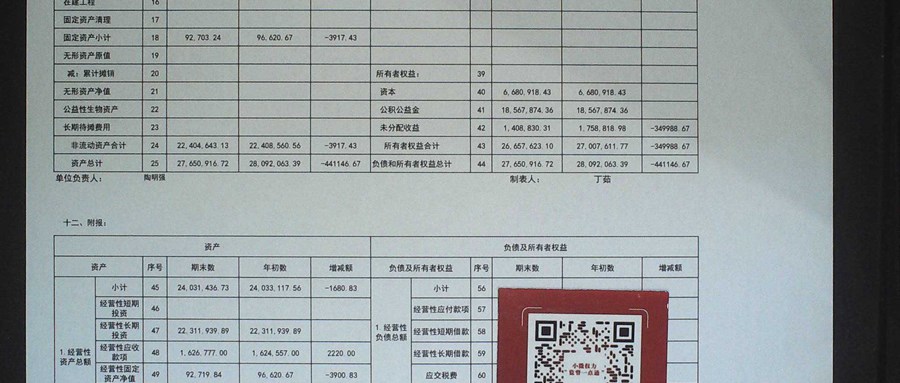 在建工程 16
固定资产清理 17
固定资产小计 18 92,703.24 96,620.67 -3917.43
无形资产原值 19
减：累计摊销 20 所有者权益： 39
无形资产净值 21 资本 40 6,680,918.43 6,680,918.43
公益性生物资产 22 公积公益金 41 18,567,874.36 18,567,874.36
长期待摊费用 23 未分配收益 42 1,408,830.31 1,758,818.98 -349988.67
非流动资产合计 24 22,404,643.13 22,408,560.56 -3917.43 所有者权益合计 43 26,657,623.10 27,007,611.77 -349988.67
资产总计 25 27,650,916.72 28,092,063.39 -441146.67 负债和所有者权益总计 44 27,650,916.72 28,092,063.39 -441146.67
单位负责人： 陶明强 制表人： 丁茹
十二、附报：
资产 负债及所有者权益
资产 序号 期末数 年初数 增减额 负债及所有者权益 序号 期末数 年初数 增减额
小计 45 24,031,436.73 24,033,117.56 -1680.83 小计 56
经营性短期投资 46 经营性应付款项 57
经营性长期投资 47 22,311,939.89 22,311,939.89 1.经营性负债总额 经营性短期借款 58
1.经营性资产总额 经营性应收款项 48 1,626,777.00 1,624,557.00 2220.00 经营性长期借款 59
经营性固定资产净值 49 92,719.84 96,620.67 -3900.83 应交税费 60
小微权力
监督一点通